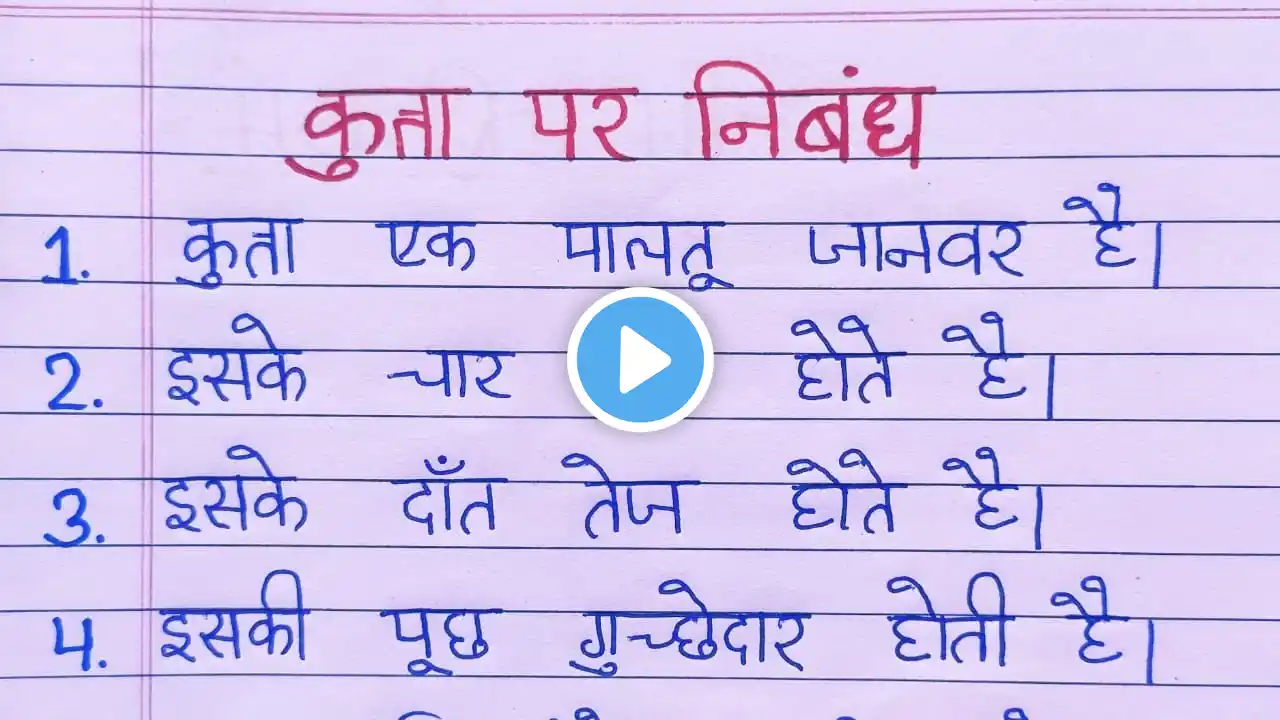 कुत्ता पर निबंध
1. कुता एक पालतू जानवर है।
2. इसके चार होते है।
3. इसके दाँत तेज होते है।
4. इसकी पूछ गुच्छेदार होती है।